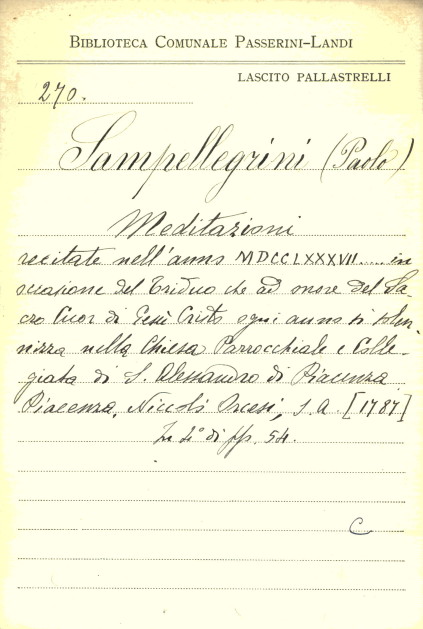 BIBLIOTECA COMUNALE PASSERINI-LANDI
LASCITO PALLASTRELLI
270.
Sampellegrini (Paolo)
Meditazioni
recitate nell'anno MDCCLXXXVII..... in
occasione del Triduo che ad onore del Sa-
cro Cuor di Gesù Cristo ogni anno si solen-
nizza nella Chiesa Parrocchiale e Colle-
giata di S. Alessandro di Piacenza
Piacenza, Niccolò Orcesi, s. a. [1787]
In 4° di pp. 54.
C